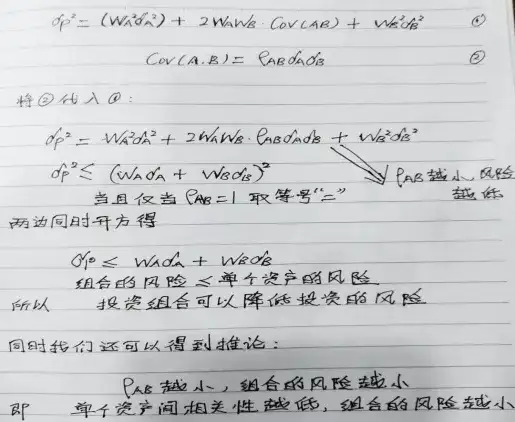 σp² = (WA²σA²) + 2WAWB·COV(AB) + WB²σB² ①
COV(A.B) = ρABσAσB ②
将②代入①:
σp² = WA²σA² + 2WAWB·ρABσAσB + WB²σB²
σp² ≤ (WAσA + WBσB)²
ρAB越小,风险越低
当且仅当 ρAB=1 取等号"="
两边同时开方得
σp ≤ WAσA + WBσB
组合的风险 ≤ 单个资产的风险
所以 投资组合可以降低投资的风险
同时我们还可以得到推论:
ρAB越小,组合的风险越小
即 单个资产间相关性越低,组合的风险越小